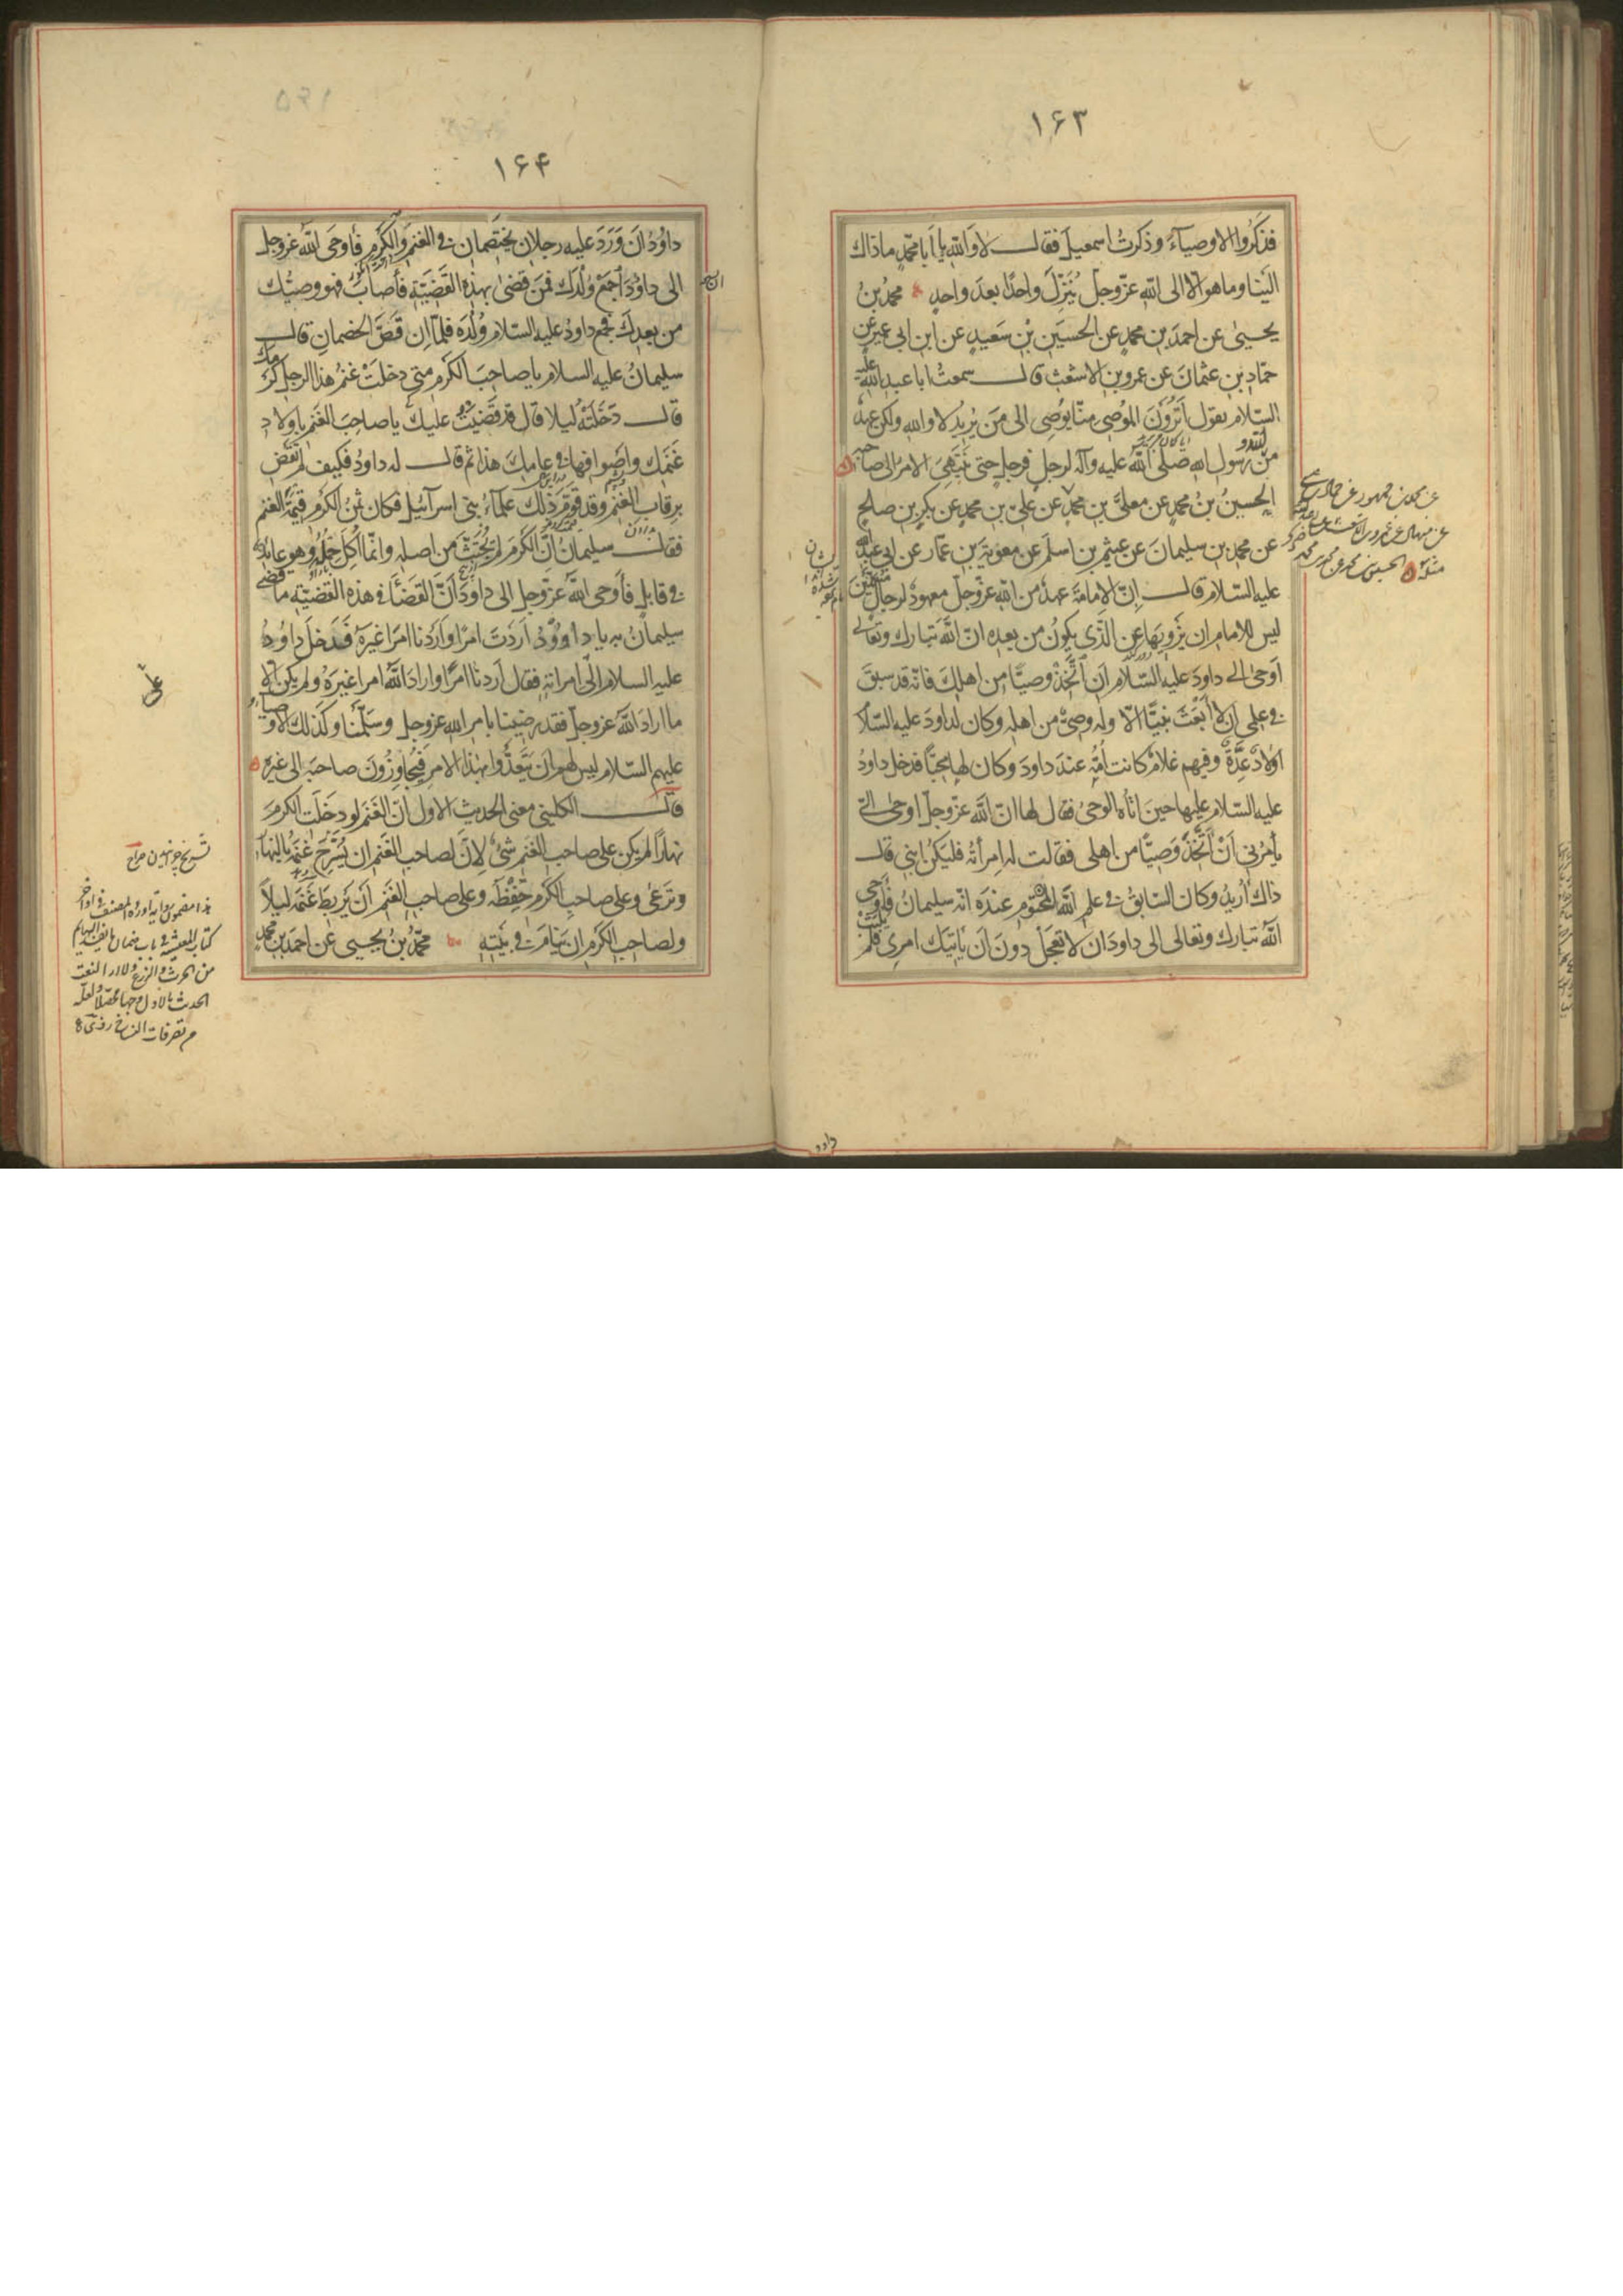 ۱۶۳
فذكروا الاوصيآء وذكرتُ اسمعيل فقال لا والله يا أبا محمّدٍ ماذاك
الَينا وما هو الّا الى اللهِ عزّوجلّ يُنَزِّلُ واحدًا بعدَ واحدٍ محمدُ بنُ
يحيىٰ عن احمدَ بن محمدٍ عن الحسَينِ بْنِ سَعيدٍ عن ابن ابى عميرٍ عن
حمّادِ بنِ عثمانَ عن عمرو بن الاشعَثِ قال سمعتُ ابا عبد الله عليه
السّلام يقول اَتَرَوْنَ الموُصِى مِنّا يوُصِى الى مَن يُريدُ لا والله ولكن عهدٌ
مِنَ الله ورسولِه صلّى اللهُ عليه وآله لرجلٍ فرجلٍ حتى يَنتَهِىَ الامرُ الى صاحبه
الحسينُ بنُ محمدٍ عن معلَّى بنِ محمدٍ عن علىّ بن محمدٍ عن بكرِ بن صلحٍ
عن محمد بن سليمانَ عن عيثمِ بن اسلَمَ عن معويةَ بن عمّار عن ابى عبد الله
عليه السّلام قال اِنّ الاِمامَةَ عهدٌ من اللهِ عزّوجلّ معهودٌ لرجالٍ مُسَمَّيْنَ
ليس للامامِ ان يَزْوِيَها عن الّذى يكونُ من بعدِه انّ اللهَ تبارك وتعالى
اَوحىٰ الى داودَ عليه السّلام اَن اتَّخِذْ وصيًّا من اهلِكَ فانّه قد سبقَ
فى علمى اَن لا اَبْعَثَ نبيًّا الّا وله وصىٌّ من اهلِه وكان لداودَ عليه السّلام
اَولادٌ عِدَّةٌ وفيهم غلامٌ كانت اُمُّه عندَ داودَ وكان لها مُحبًّا فدخل داودُ
عليه السّلام عليها حينَ اتاه الوحىُ فقال لها انّ اللهَ عزّوجلّ اوحىٰ الىَّ
يأمرُنى اَنْ اَتَّخِذَ وَصيًّا من اهلى فقالت له اِمرأتُه فليكن ابنى قال
ذاك اُريدُ وكان السّابقُ فى علمِ اللهِ المحتومِ عندَه انّه سليمانُ فاَوحى
اللهُ تبارك وتعالى الى داودَ ان لا تَعجَلْ دونَ اَن يأتيَك امرى فلم يلبث
عن محمد بن جمهور عن حماد بن عيسى
مثله الحسين بن محمد عن
داود
۱۶۴
داوُدُ اَن وَرَدَ عليه رجلانِ يختصِمان فى الغَنمِ والكَرمِ فأوحَى اللهُ عزوجلّ
الى داوُدَ اَن اجمَعْ وُلْدَك فمَن قضىٰ بهذه القَضيّةِ فأصابَ فهو وصيُّك
من بعدِكَ فجمع داودُ عليه السّلام وُلْدَه فلمّا اِن قَصَّ الخصمانِ قال
سليمانُ عليه السلام يا صاحبَ الكَرمِ متى دخلَتْ غنمُ هذا الرجلِ كَرمَك
قال دَخَلَتْه ليلا قال قد قَضَيتُ عليك يا صاحبَ الغَنمِ باولاد
غَنمِك واَصوافِها فى عامِكَ هذا ثم قال له داودُ فكيف لم تَقْضِ
برِقابِ الغنمِ وقد قَوَّمَ ذلك علمآءُ بنى اسرآئيل فكان ثمنُ الكَرمِ قيمةَ الغنم
فقال سليمانُ اِنَّ الكَرمَ لم يُجْتَثَّ من اصلِه وانّما اُكِلَ حِملُه وهو عائدٌ
فى قابلٍ فأوحى اللهُ عزّوجلّ الى داودَ اَنّ القَضآءَ فى هذه القَضيّةِ ما قضى
سليمانُ به يا داوُدُ اَرَدتَ امرًا واَرَدْنا امرًا غيرَه فدخلَ داوُدُ
عليه السلام الى امراتِه فقال اَردنا امرًا واراد اللهُ امرا غيرَه ولم يكن الّا
ما اراد اللهُ عزوجلّ فقد رضينا بامرِ الله عزوجلّ وسَلّمنا وكذلك الاوصياءُ
عليهم السّلام ليس لهم اَن يتعدَّوا بهذا الامرِ فيُجاوِزُونَ صاحبَه الى غيرِه
قال الكلينى معنى الحديثِ الاول اَنّ الغَنمَ لو دخَلَت الكرمَ
نهارًا لم يكن على صاحبِ الغنم شئٌ لِاَنّ لصاحبِ الغنمِ ان يُسَرِّحَ غنمَه بالنهار
وتَرعىٰ وعلى صاحبِ الكَرمِ حِفْظُه وعلى صاحبِ الغَنمِ اَن يَربِطَ غَنَمَه ليلاً
ولصاحبِ الكَرمِ ان يَنامَ فى بَيتِه محمّدُ بنُ يحيى عن احمدَ بن محمدٍ
هذا مضمون رواية اورده المصنف فى اواخر
كتاب المعيشة فى باب ضمان ما يفسد البهائم
من الحرث والزرع